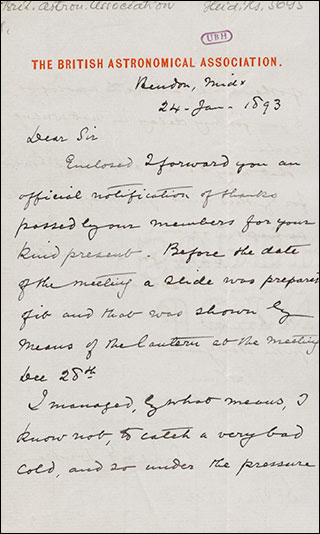 Brit. Astron. Association
UBH
THE BRITISH ASTRONOMICAL ASSOCIATION.
Hendon, Midx
24 - Jan - 1893
Dear Sir
Enclosed I forward you an
official notification of thanks
passed by our members for your
kind present. Before the date
of the meeting a slide was prepared
and that was shown by
means of the lantern at the meeting
Dec 28th
I managed, by what means, I
know not, to catch a very bad
cold, and so under the pressure